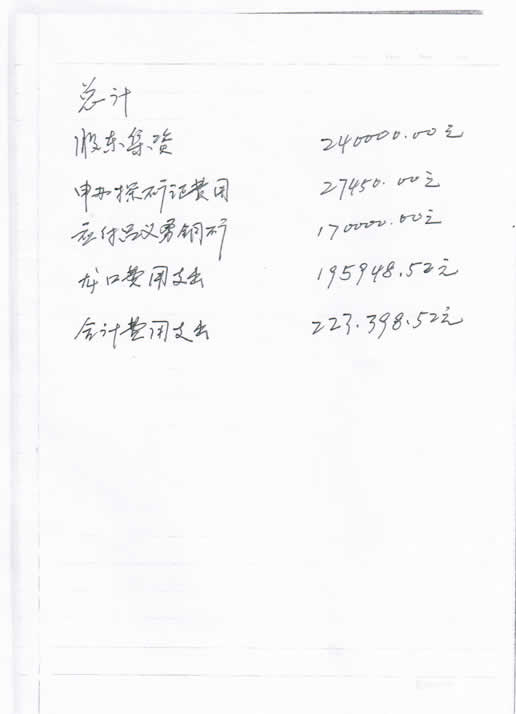 总计
股东集资 240000.00元
申办探矿证费用 27450.00元
应付吕义勇铜矿 170000.00元
龙口费用支出 195948.52元
合计费用支出 223.398.52元